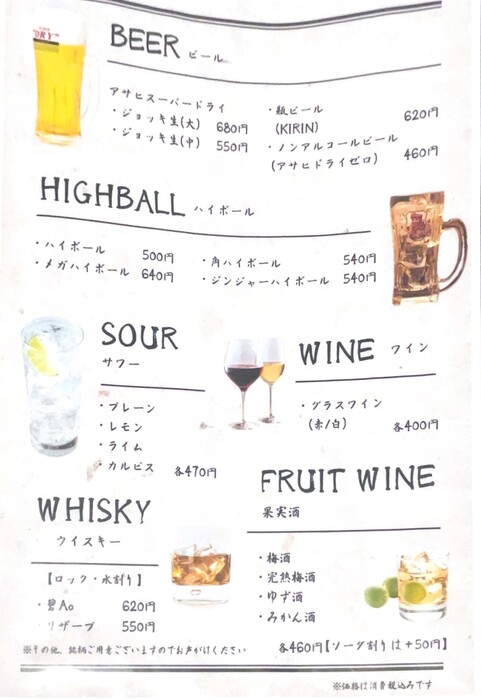 BEER ビール
アサヒスーパードライ
・ジョッキ生(大) 680円
・ジョッキ生(中) 550円
・瓶ビール
(KIRIN) 620円
・ノンアルコールビール
(アサヒドライゼロ) 460円
HIGHBALL ハイボール
・ハイボール 500円
・メガハイボール 640円
・角ハイボール 540円
・ジンジャーハイボール 540円
SOUR
サワー
・プレーン
・レモン
・ライム
・カルピス 各470円
WINE ワイン
・グラスワイン
(赤/白) 各400円
WHISKY
ウイスキー
【ロック・水割り】
・碧Ao 620円
・リザーブ 550円
※その他、銘柄ご用意ございますのでお声がけください
FRUIT WINE
果実酒
・梅酒
・完熟梅酒
・ゆず酒
・みかん酒
各460円【ソーダ割りは+50円】
※価格は消費税込みです